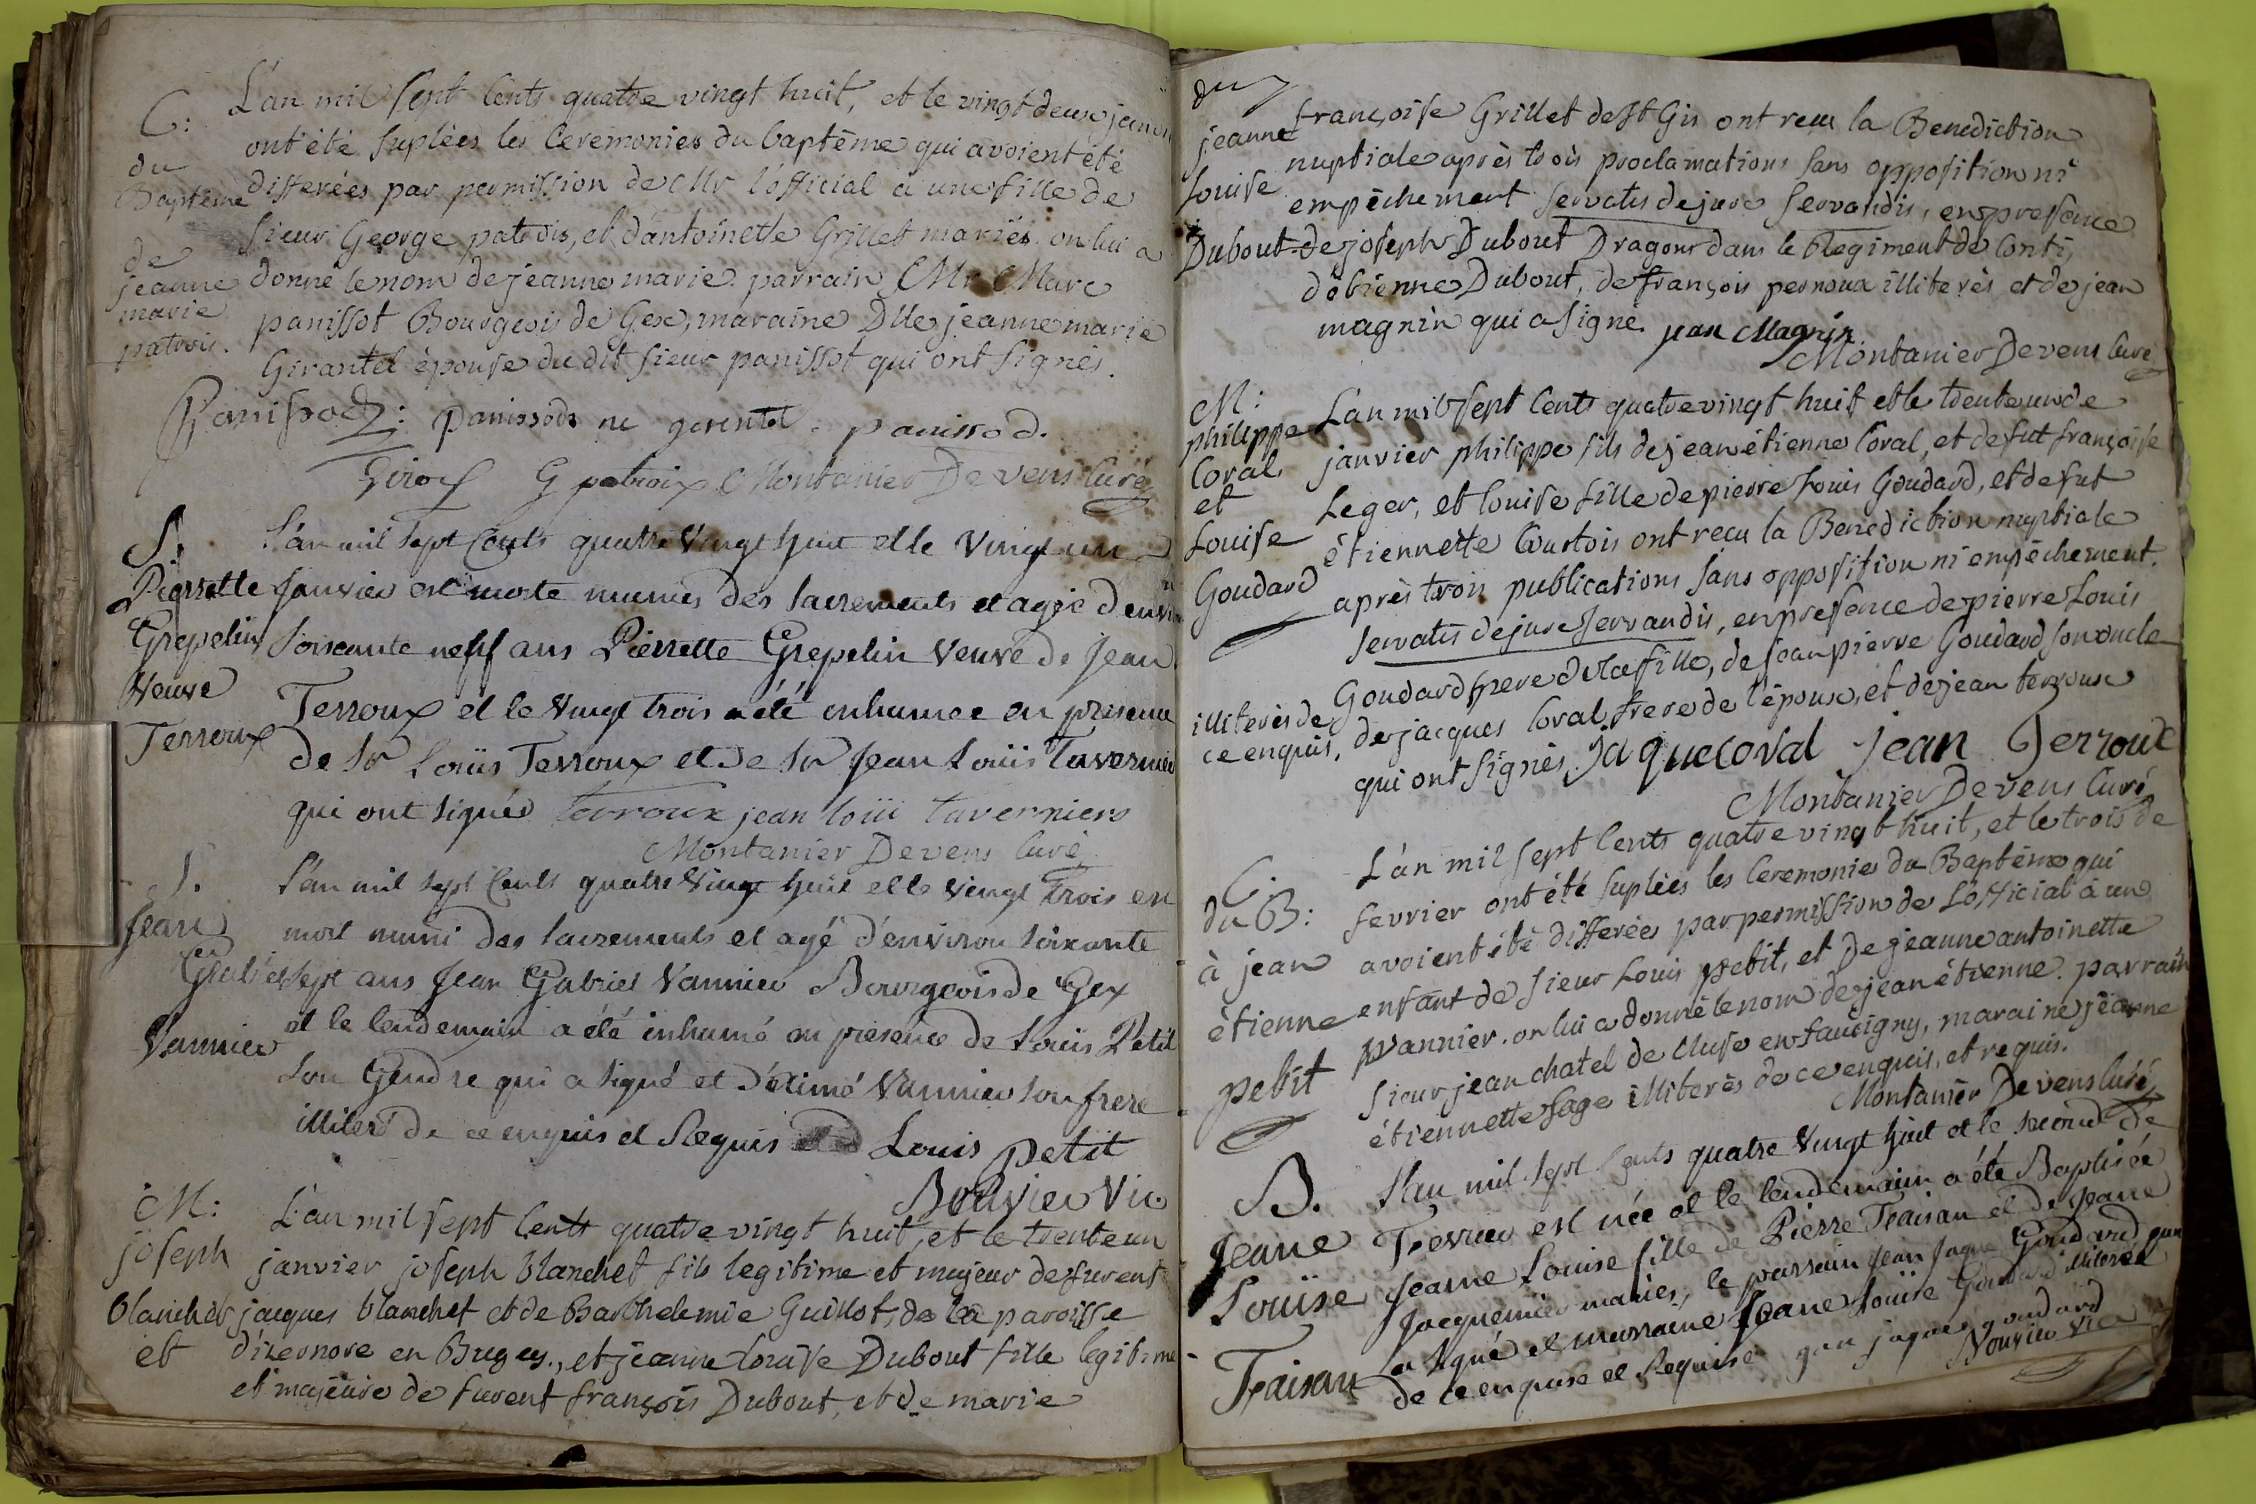 C: du Baptême de jeanne marie patrois.
L'an mil sept cents quatre vingt huit, et le vingt deux janvi
ont été suplées les Ceremonies du baptême qui avoient été
differées par permission de Mr l'official a une fille de
sieur George patrois, et d'antoinette Grillet mariés. on lui a
donné le nom de jeanne marie. parrain Mr Marc
panissot Bourgeois de Gex, maraine Dlle jeanne marie
Girantel épouse du dit sieur panissot qui ont signés.
Panissod: panissod ne gerentel. panissod.
Girod G patroix Montanier Devens Curé
S. Pierrette Grepelin Veuve Terroux
L'an mil sept Cents quatre Vingt huit et le Vingt un
Janvier est morte munie des sacrements et agée d'envi
soixante neuf ans Pierrette Grepelin Veuve de Jean
Terroux et le Vingt trois a été inhumée en presence
de Sr Louis Terroux et de Sr Jean Louis Tavernier
qui ont signés terroux jean loüi taverniers
Montanier Devens Curé
S. Jean Gabriel Vannier
L'an mil sept Cents quatre Vingt huit et le Vingt trois est
mort muni des sacrements et agé d'environ soixante
sept ans Jean Gabriel Vannier Bourgeois de Gex
et le lendemain a été inhumé en presence de Louis Petit
son Gendre qui a signé et d'étimé Vannier son frere
illiteré de ce enquis et Requis Louis petit
Bouvier Vic
M: joseph blanchet et
L'an mil sept cents quatre vingt huit, et le trente un
janvier joseph blanchet fils legitime et majeur de furent
jacques blanchet et de Barthelemie Guillot, de la paroisse
d'izernore en Bugey, et jeanne louise Dubout fille legitime
et majeure de furent françois Dubout, et de marie
du jeanne Louise Dubout
françoise Grillet de St Gis ont recu la Benediction
nuptiale après trois proclamations sans opposition ni
empêchement servatis de jure servandis, en presence
de joseph Dubout Dragons dans le Regiment de Conti,
d'étienne Dubout, de françois pernoux illiterés et de jean
magnin qui a signé. jean Magnin
Montanier Devens Curé
M: philippe Coral et Louise Goudard
L'an mil sept Cents quatre vingt huit et le trente un de
janvier philippe fils de jean étienne Coral, et de fut françoise
Leger, et louise fille de pierre Louis Goudard, et de fut
étiennette Courtois ont recu la Benediction nuptiale
après trois publications sans opposition ni empêchement.
servatis de jure servandis, en presence de pierre Louis
Goudard pere de la fille, de jean pierre Goudard son oncle
illiterés de ce enquis, de jacques Coral frere de l'époux, et de jean terroux
qui ont signés. jaque coral jean Terroux
Montanier Devens Curé
C. du B: à jean étienne petit
L'an mil sept Cents quatre vingt huit, et le trois de
fevrier ont été suplées les Ceremonies du Baptême qui
avoient été differées par permission de L'official à un
enfant de sieur Louis petit, et de jeanne antoinette
wannier. on lui a donné le nom de jean étienne. parrain
sieur jean chatel de Cluse en faucigny, maraine jeanne
étiennette sage illiterés de ce enquis, et requis.
Montanier Devens Curé
B. Jeane Louïse Traisan
L'an mil sept Cents quatre Vingt huit et le second de
Fevrier est née et le lendemain a été Baptisée
Jeanne Louise fille de Pierre Traisan et de Jeane
Jacquemier mariés, le parrain Jean Jaque Goudard qui
a signé et marraine Jeane Louïse Goudard illiterée
de ce enquise et Requise gan jaque goudard
Bouvier Vic